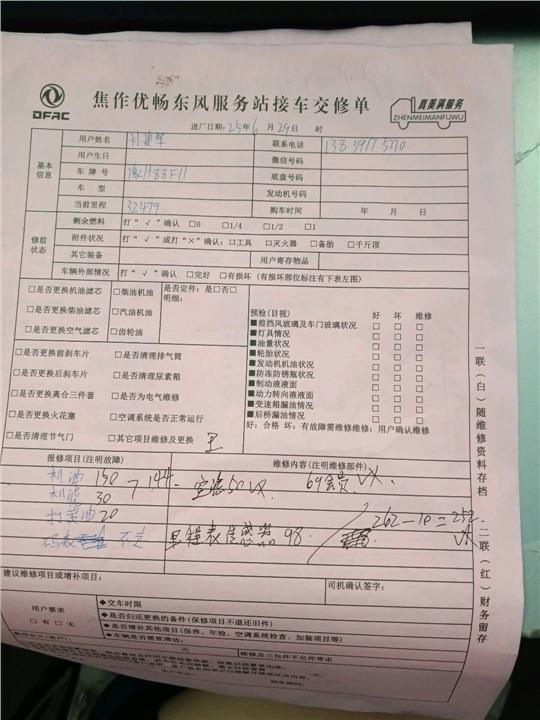 DFAC
焦作优畅东风服务站接车交修单
真美满服务
ZHENMEIMANFUWU
进厂日期: 25 年 6 月 29 日 时
基本信息
用户姓名 联系电话
用户生日 微信号码
车牌号 底盘号码
车型 发动机号码
当前里程 32479 购车时间 年 月 日
修前状态
剩余燃料 打“√”确认 □0 □1/4 □1/2 □1
附件状况 打“√”或打“×”确认: □工具 □灭火器 □备胎 □千斤顶
其它装备 用户寄存物品
车辆外部情况 打“√”确认 □完好 □有损坏 (有损坏部位标注有下表左图)
□是否更换机油滤芯 □柴油机油 是否定件: 是□否□
□是否更换柴油滤芯 □汽油机油 明细:
□是否更换空气滤芯 □齿轮油
□是否更换前刹车片 □是否清理排气筒
□是否更换后刹车片 □是否清理尿素箱
□是否更换离合三件套 □是否为电气维修
□是否更换火花塞 □空调系统是否正常运行
□是否清理节气门 □其它项目维修及更换
预检(目视) 好 坏 维修
■前挡风玻璃及车门玻璃状况 □ □ □
■灯具情况 □ □ □
■油量状况 □ □ □
■轮胎状况 □ □ □
■发动机机油状况 □ □ □
■防冻防锈瓶状况 □ □ □
■制动液液面 □ □ □
■动力转向液液面 □ □ □
■变速箱漏油情况 □ □ □
■后桥漏油情况 □ □ □
好: 合格 坏: 有故障需维修维修: 用户确认维修
报修项目(注明故障) 维修内容(注明维修部件)
机油 150
机滤 30
144
空滤50
69会员
打黄油 20
262-10=252
码表 不走 里程表传感器 98
建议维修项目或增补项目: 司机确认签字:
用户要求
□有 □无
◆交车时限
◆是否归还更换的备件(保修项目不退还旧件)
◆是否增补其他项目(保养、年检、空调系统检查、加装项目等)
◆车辆是否需要清洁:
元 维修及三包件不允许带走
一联(白)随维修资料存档
二联(红)财务留存